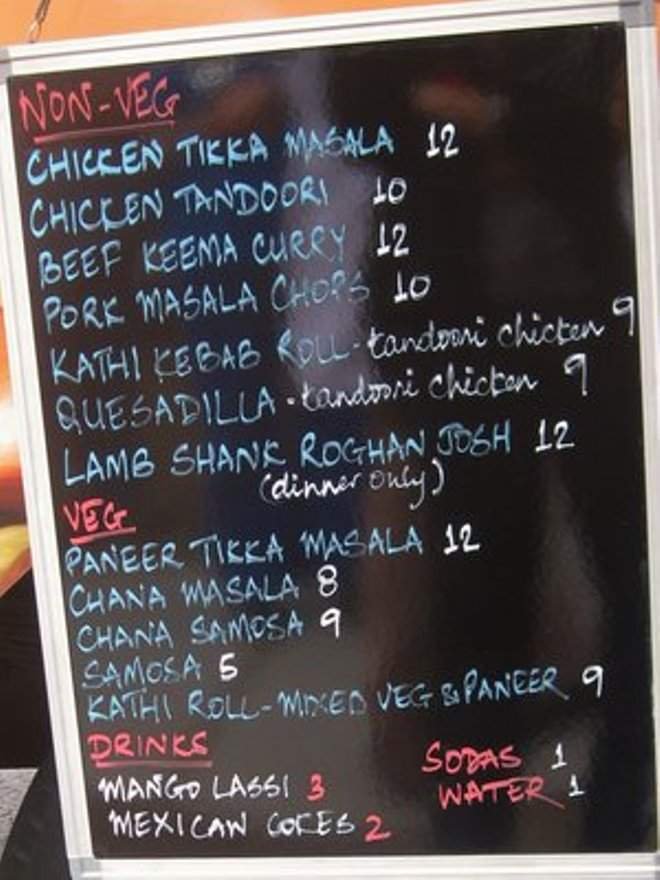 NON-VEG
CHICKEN TIKKA MASALA 12
CHICKEN TANDOORI 10
BEEF KEEMA CURRY 12
PORK MASALA CHOPS 10
KATHI KEBAB ROLL-tandoori chicken 9
QUESADILLA - tandoori chicken 9
LAMB SHANK ROGHAN JOSH 12
(dinner only)
VEG
PANEER TIKKA MASALA 12
CHANA MASALA 8
CHANA SAMOSA 9
SAMOSA 5
KATHI ROLL-MIXED VEG & PANEER 9
DRINKS
MANGO LASSI 3
MEXICAN COKES 2
SODAS 1
WATER 1